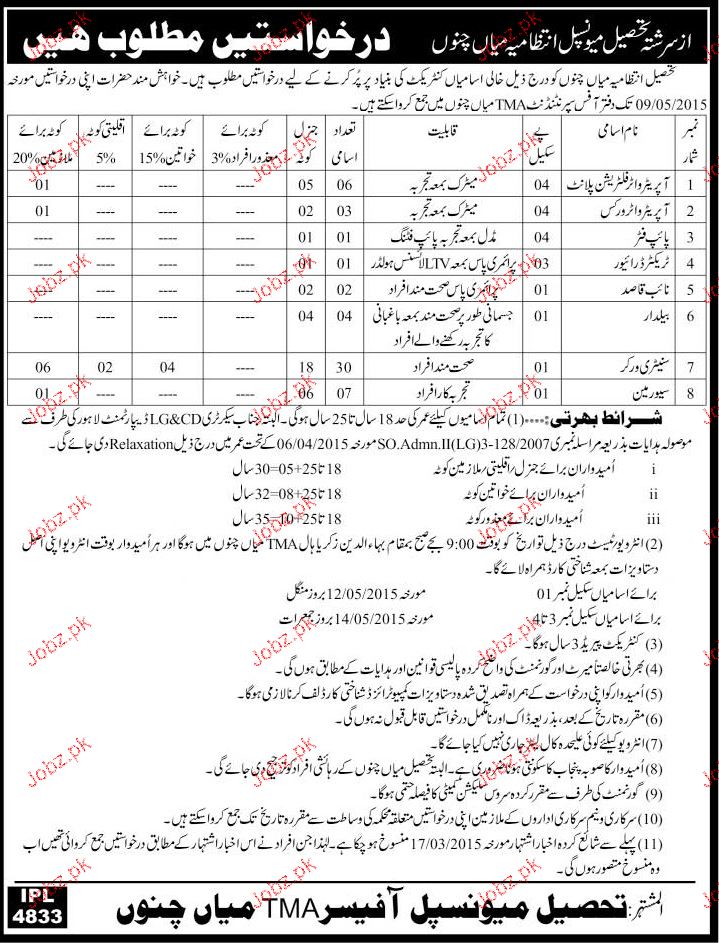 از سرشتہ تحصیل میونسپل انتظامیہ میاں چنوں درخواستیں مطلوب ھیں
تحصیل انتظامیہ میاں چنوں کو درج ذیل خالی اسامیاں کنٹریکٹ کی بنیاد پر پُر کرنے کے لیے درخواستیں مطلوب ہیں۔ خواہش مند حضرات اپنی درخواستیں مورخہ
09/05/2015 تک دفتر آفس سپرنٹنڈنٹ TMA میاں چنوں میں جمع کروا سکتے ہیں۔
نمبر شمار | نام اسامی | پے سکیل | قابلیت | تعداد اسامی | جنرل کوٹہ | کوٹہ برائے معذور افراد 3% | کوٹہ برائے خواتین 15% | اقلیتی کوٹہ 5% | کوٹہ برائے ملازمین 20%
1 | آپریٹر واٹر فلٹریشن پلانٹ | 04 | میٹرک بمعہ تجربہ | 06 | 05 | ---- | ---- | ---- | 01
2 | آپریٹر واٹر ورکس | 04 | میٹرک بمعہ تجربہ | 03 | 02 | ---- | ---- | ---- | 01
3 | پائپ فٹر | 04 | مڈل بمعہ تجربہ پائپ فٹنگ | 01 | 01 | ---- | ---- | ---- | ----
4 | ٹریکٹر ڈرائیور | 03 | پرائمری پاس بمعہ LTV لائسنس ہولڈر | 01 | 01 | ---- | ---- | ---- | ----
5 | نائب قاصد | 01 | پرائمری پاس صحت مند افراد | 02 | 02 | ---- | ---- | ---- | ----
6 | بیلدار | 01 | جسمانی طور پر صحت مند بمعہ باغبانی کا تجربہ رکھنے والے افراد | 04 | 04 | ---- | ---- | ---- | ----
7 | سنیٹری ورکر | 01 | صحت مند افراد | 30 | 18 | ---- | 04 | 02 | 06
8 | سیور مین | 01 | تجربہ کار افراد | 07 | 06 | ---- | ---- | ---- | 01
شرائط بھرتی:---- (1) تمام اسامیوں کیلئے عمر کی حد 18 سال تا 25 سال ہوگی۔ البتہ جناب سیکرٹری LG&CD ڈیپارٹمنٹ لاہور کی طرف سے
موصولہ ہدایات بذریعہ مراسلہ نمبری SO.Admn.II(LG)3-128/2007 مورخہ 06/04/2015 کے تحت عمر میں درج ذیل Relaxation دی جائے گی۔
i اُمیدواران برائے جنرل / اقلیتی / ملازمین کوٹہ 18 تا 25+05=30 سال
ii اُمیدواران برائے خواتین کوٹہ 18 تا 25+08=32 سال
iii اُمیدواران برائے معذور کوٹہ 18 تا 25+10=35 سال
(2) انٹرویو ٹیسٹ درج ذیل تواریخ کو بوقت 9:00 بجے صبح بمقام بہاءالدین زکریا ہال TMA میاں چنوں میں ہوگا اور ہر اُمیدوار بوقت انٹرویو اپنی اصل
دستاویزات بمعہ شناختی کارڈ ہمراہ لائے گا۔
برائے اسامیاں سکیل نمبر 01 مورخہ 12/05/2015 بروز منگل
برائے اسامیاں سکیل نمبر 3 تا 4 مورخہ 14/05/2015 بروز جمعرات
(3) کنٹریکٹ پیریڈ 3 سال ہوگا۔
(4) بھرتی خالصتاً میرٹ اور گورنمنٹ کی واضح کردہ پالیسی قوانین اور ہدایات کے مطابق ہوں گی۔
(5) اُمیدوار کو اپنی درخواست کے ہمراہ تصدیق شدہ دستاویزات کمپیوٹرائزڈ شناختی کارڈ لف کرنا لازمی ہوگا۔
(6) مقررہ تاریخ کے بعد، بذریعہ ڈاک اور نامکمل درخواستیں قابل قبول نہ ہوں گی۔
(7) انٹرویو کیلئے کوئی علیحدہ کال لیٹر جاری نہیں کیا جائے گا۔
(8) اُمیدوار کا صوبہ پنجاب کا سکونتی ہونا ضروری ہے۔ البتہ تحصیل میاں چنوں کے رہائشی افراد کو ترجیح دی جائے گی۔
(9) گورنمنٹ کی طرف سے مقرر کردہ سروس سلیکشن کمیٹی کا فیصلہ حتمی ہوگا۔
(10) سرکاری و نیم سرکاری اداروں کے ملازمین اپنی درخواستیں متعلقہ محکمہ کی وساطت سے مقررہ تاریخ تک جمع کروا سکتے ہیں۔
(11) پہلے سے شائع کردہ اخبار اشتہار مورخہ 17/03/2015 منسوخ ہو چکا ہے۔ لہٰذا جن افراد نے اس اخبار اشتہار کے مطابق درخواستیں جمع کروائی تھیں اب
وہ منسوخ متصور ہوں گی۔
المشتہر: تحصیل میونسپل آفیسر TMA میاں چنوں
IPL
4833
Jobz.pk